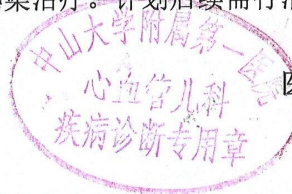 染治疗。计划后续需行
中山大学附属第一医院
心血管儿科
医
疾病诊断专用章